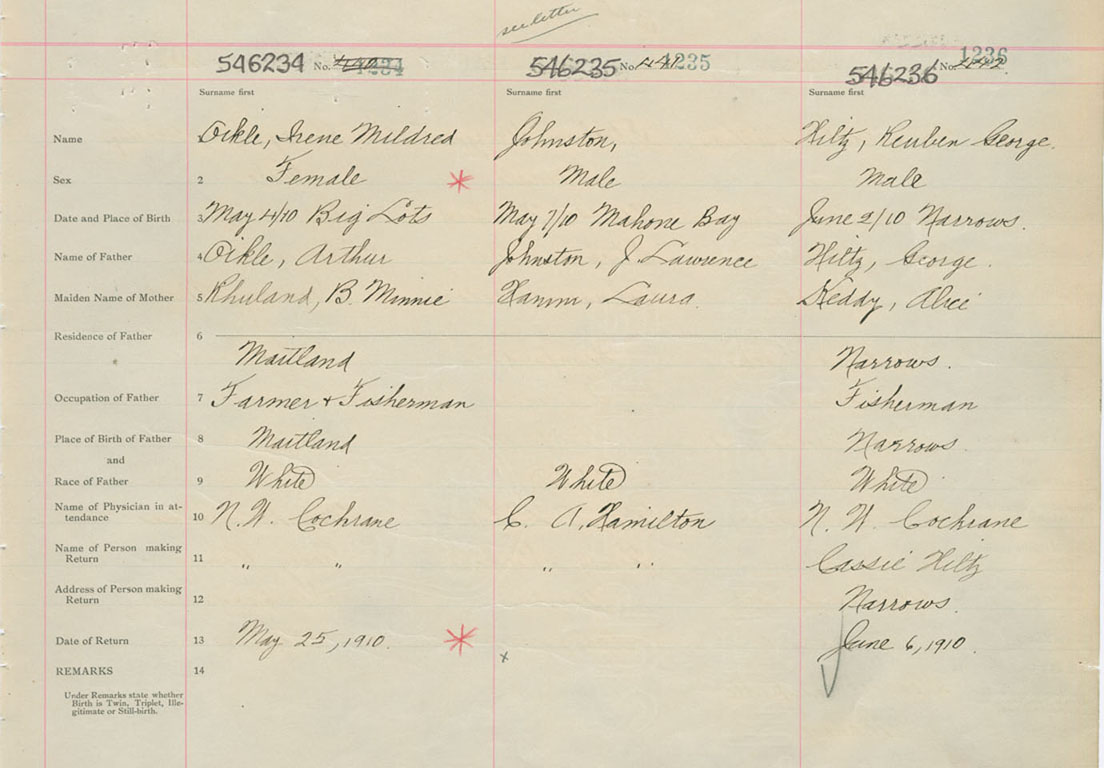 see letter
546234 No. 1234 546235 No. 1235 546236 No. 1236
Surname first Surname first Surname first
Name Oikle, Irene Mildred Johnston, Hiltz, Reuben George.
Sex 2 Female Male Male
Date and Place of Birth 3 May 4/10 Big Lots May 7/10 Mahone Bay June 2/10 Narrows.
Name of Father 4 Oikle, Arthur Johnston, J. Lawrence Hiltz, George.
Maiden Name of Mother 5 Rhuland, B. Minnie Hamm, Laura. Keddy, Alice
Residence of Father 6
Maitland Narrows.
Occupation of Father 7 Farmer + Fisherman Fisherman
Place of Birth of Father 8 Maitland Narrows.
and
Race of Father 9 White White White
Name of Physician in at-
tendance 10 N. W. Cochrane C. A. Hamilton N. W. Cochrane
Name of Person making
Return 11 " " " " Cassie Hiltz
Address of Person making
Return 12 Narrows.
Date of Return 13 May 25, 1910. x June 6, 1910.
REMARKS 14
Under Remarks state whether
Birth is Twin, Triplet, Ille-
gitimate or Still-birth.